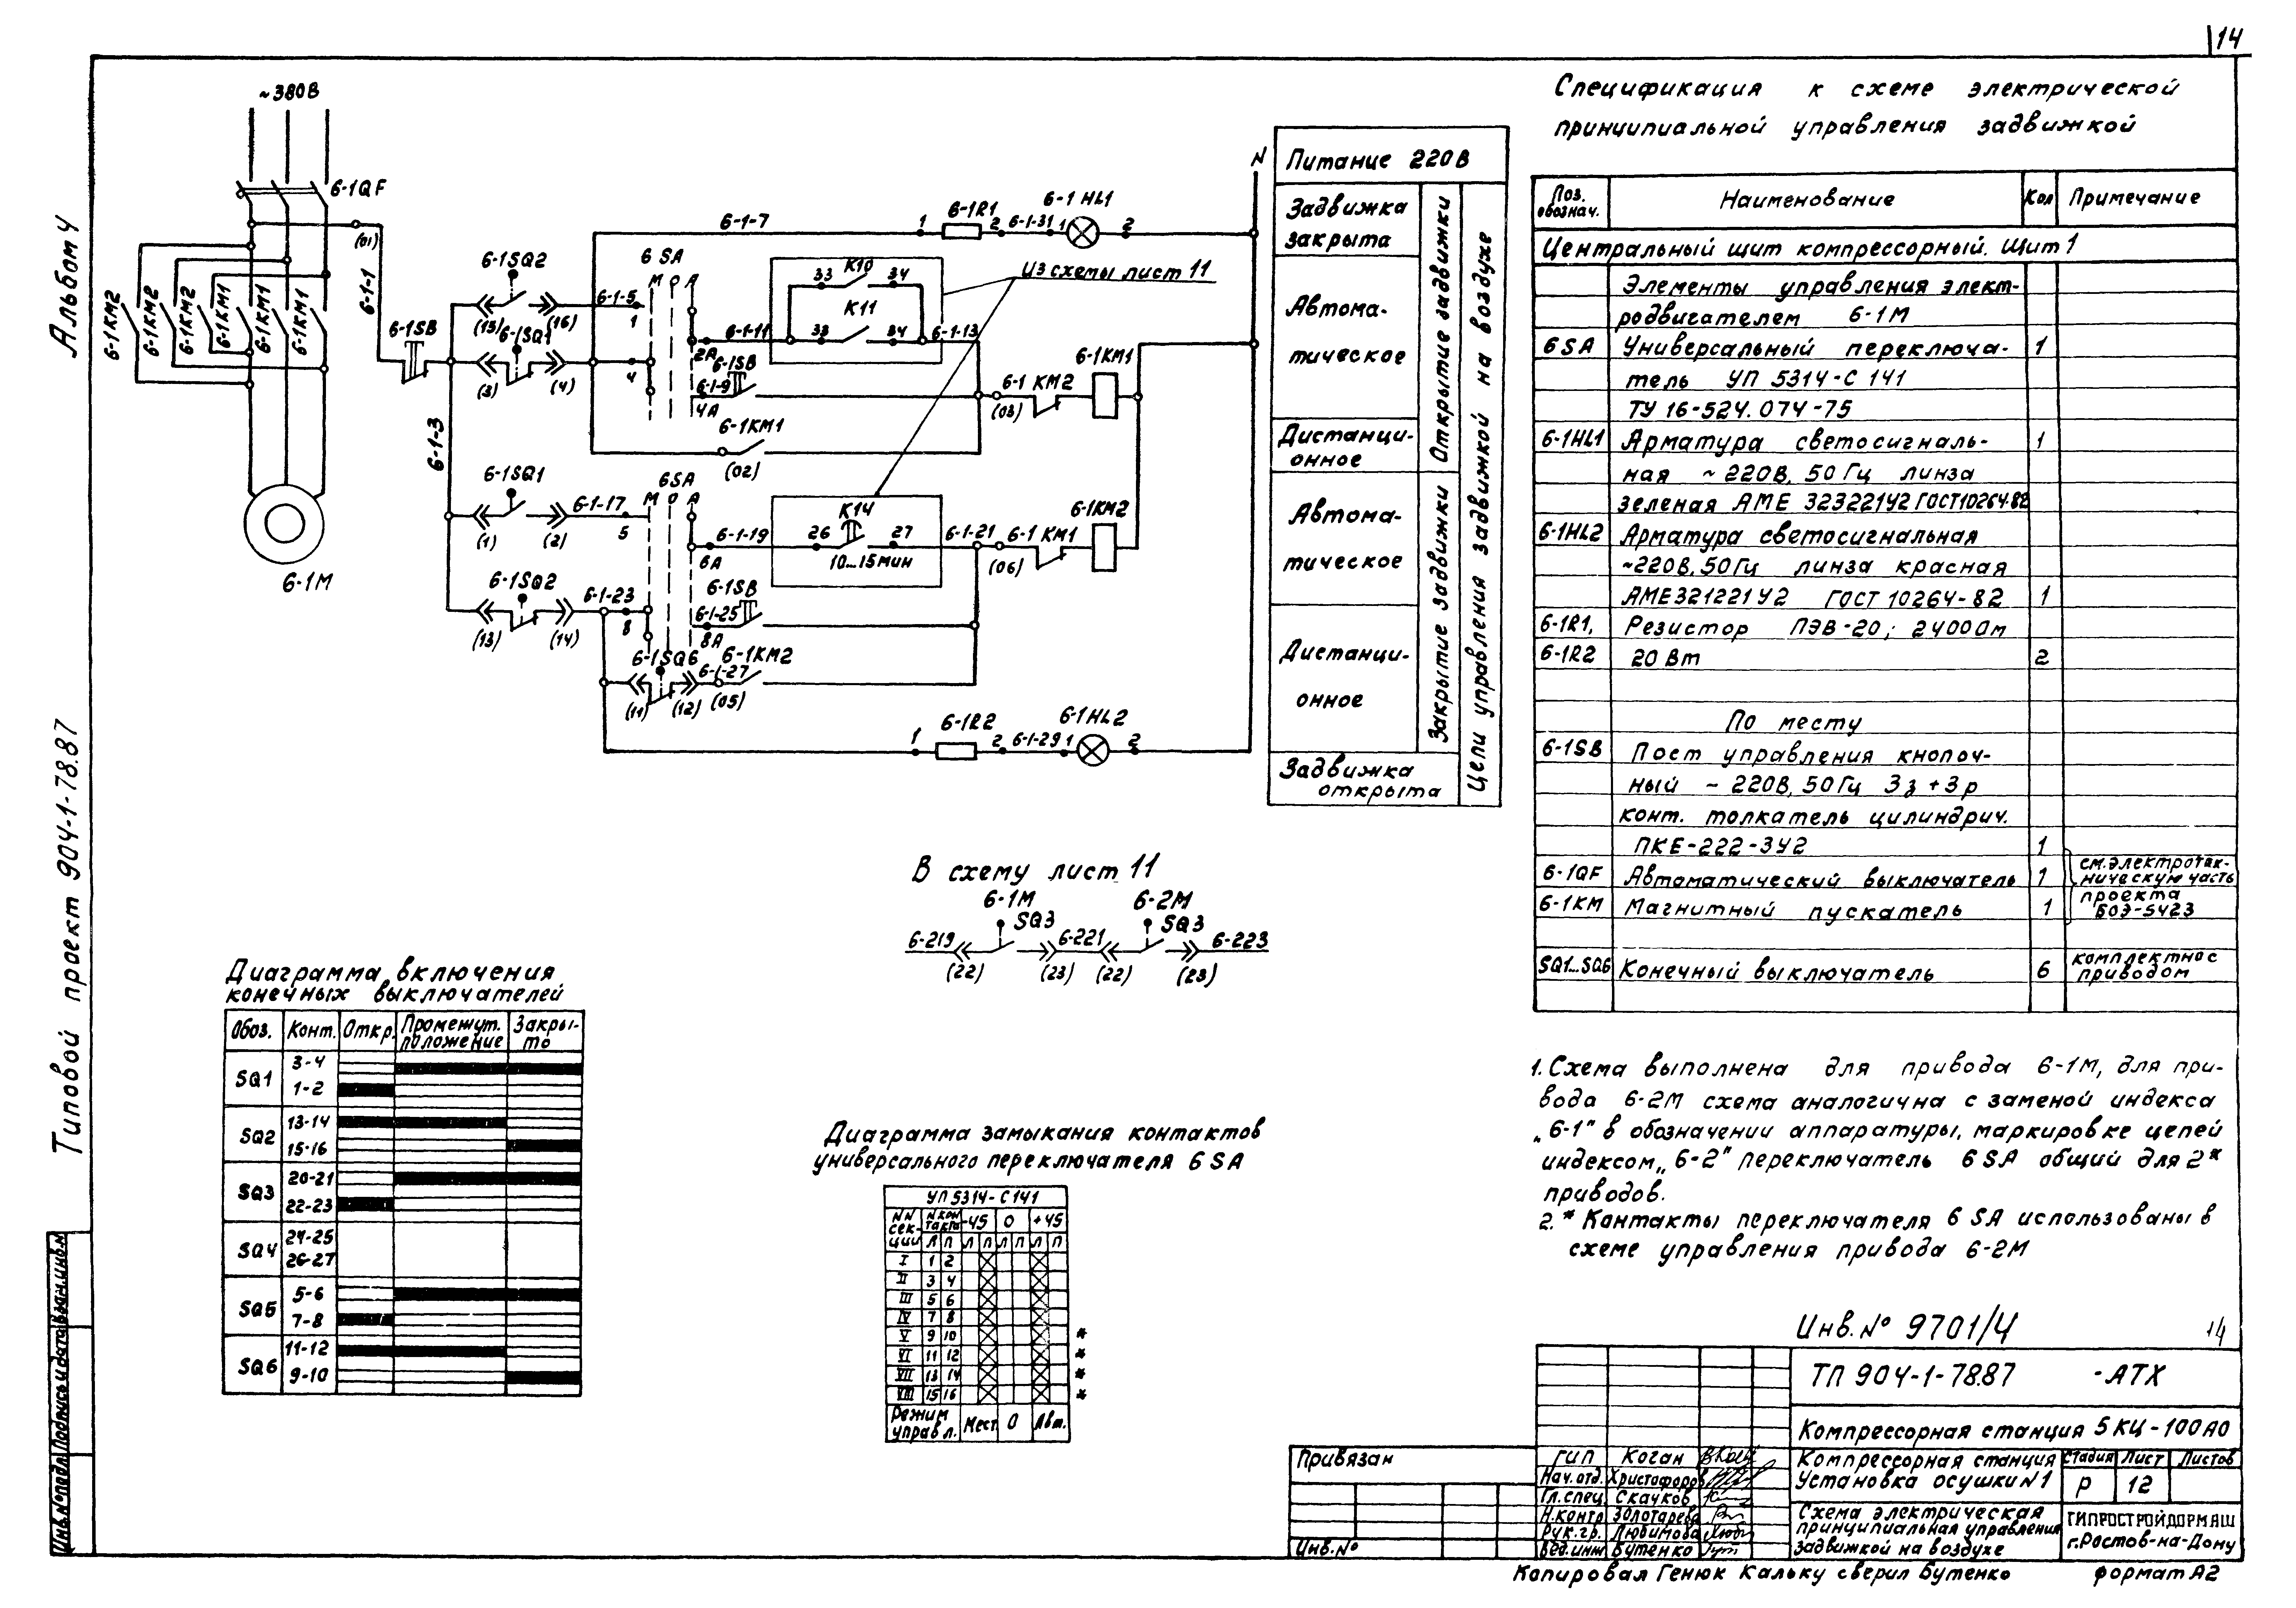 14
Альбом 4
Типовой проект 904-1-78.87
Инв.№ подл.
Подпись и дата
Взам.инв.№
~380В
6-1QF
(01)
6-1-1
6-1KM2
6-1KM2
6-1KM2
6-1KM1
6-1KM1
6-1KM1
6-1M
6-1SB
6-1-3
6-1SQ2
(15)
(16)
6-1SQ1
(3)
(4)
6-1-7
1
6-1R1
2
6-1-31
1
6-1 HL1
2
N
6 SA
М О А
6-1-5
1
4
2А
6-1-11
33 K10 34
33 K11 34
6-1-13
Из схемы лист 11
6-1SB
6-1-9
4А
6-1KM1
(02)
(03)
6-1 KM2
6-1KM1
6-1SQ1
(1)
(2)
6-1-17
5
6SA
М О А
6-1-19
6А
K14
26 27
10...15мин
6-1-21
(06)
6-1 KM1
6-1KM2
6-1SQ2
(13)
(14)
6-1-23
8
6-1SB
6-1-25
8А
6-1SQ6
(11)
(12)
6-1-27
6-1KM2
(05)
1
6-1R2
2
6-1-29
1
6-1HL2
2
Питание 220В
Задвижка
закрыта
Автома-
тическое
Дистанци-
онное
Автома-
тическое
Дистанци-
онное
Задвижка
открыта
Открытие задвижки
Закрытие задвижки
Цепи управления задвижкой на воздухе
В схему лист 11
6-1М 6-2М
SQ3 SQ3
6-219 6-221 6-223
(22) (23) (22) (23)
Диаграмма включения
конечных выключателей
Обоз. Конт. Откр. Промежут. положение Закры-то
SQ1 3-4
1-2
SQ2 13-14
15-16
SQ3 20-21
22-23
SQ4 24-25
26-27
SQ5 5-6
7-8
SQ6 11-12
9-10
Диаграмма замыкания контактов
универсального переключателя 6 SA
УП 5314-С 141
NN секции N контакта -45 0 +45
Л П Л П Л П Л П
I 1 2
II 3 4
III 5 6
IV 7 8
V 9 10 *
VI 11 12 *
VII 13 14 *
VIII 15 16 *
Режим управл. Мест. 0 Авт.
Спецификация к схеме электрической
принципиальной управления задвижкой
Поз. обознач. Наименование Кол Примечание
Центральный щит компрессорный. Щит 1
Элементы управления элект-
родвигателем 6-1М
6SA Универсальный переключа- 1
тель УП 5314-С 141
ТУ 16-524.074-75
6-1HL1 Арматура светосигналь- 1
ная ~ 220В, 50 Гц линза
зеленая АМЕ 323221У2 ГОСТ10264-82
6-1HL2 Арматура светосигнальная
~220В, 50Гц линза красная
АМЕ321221У2 ГОСТ 10264-82 1
6-1R1, Резистор ПЭВ-20; 2400Ом
6-1R2 20 Вт 2
По месту
6-1SB Пост управления кнопоч-
ный ~ 220В, 50Гц 3з + 3р
конт. толкатель цилиндрич.
ПКЕ-222-3У2 1
6-1QF Автоматический выключатель 1 см.электротех-
ническую часть
6-1KM Магнитный пускатель 1 проекта
БОЭ-5423
SQ1...SQ6 Конечный выключатель 6 комплектно с
приводом
1. Схема выполнена для привода 6-1М, для при-
вода 6-2М схема аналогична с заменой индекса
„6-1" в обозначении аппаратуры, маркировке цепей
индексом „6-2" переключатель 6SA общий для 2*
приводов.
2.* Контакты переключателя 6 SA использованы в
схеме управления привода 6-2М
Инв.№ 9701/4
14
ТП 904-1-78.87 -АТХ
Компрессорная станция 5 КЦ-100 АО
Компрессорная станция
Установка осушки N1
Стадия Лист Листов
Р 12
Схема электрическая
принципиальная управления
задвижкой на воздухе
ГИПРОСТРОЙДОРМАШ
г.Ростов-на-Дону
Привязан
Инв.№
ГИП Коган
Нач.отд. Христофоров
Гл.спец. Скачков
Н.контр Золотарева
Рук.гр. Любимова
Вед.инж Бутенко
Копировал Генюк Кальку сверил Бутенко
формат А2